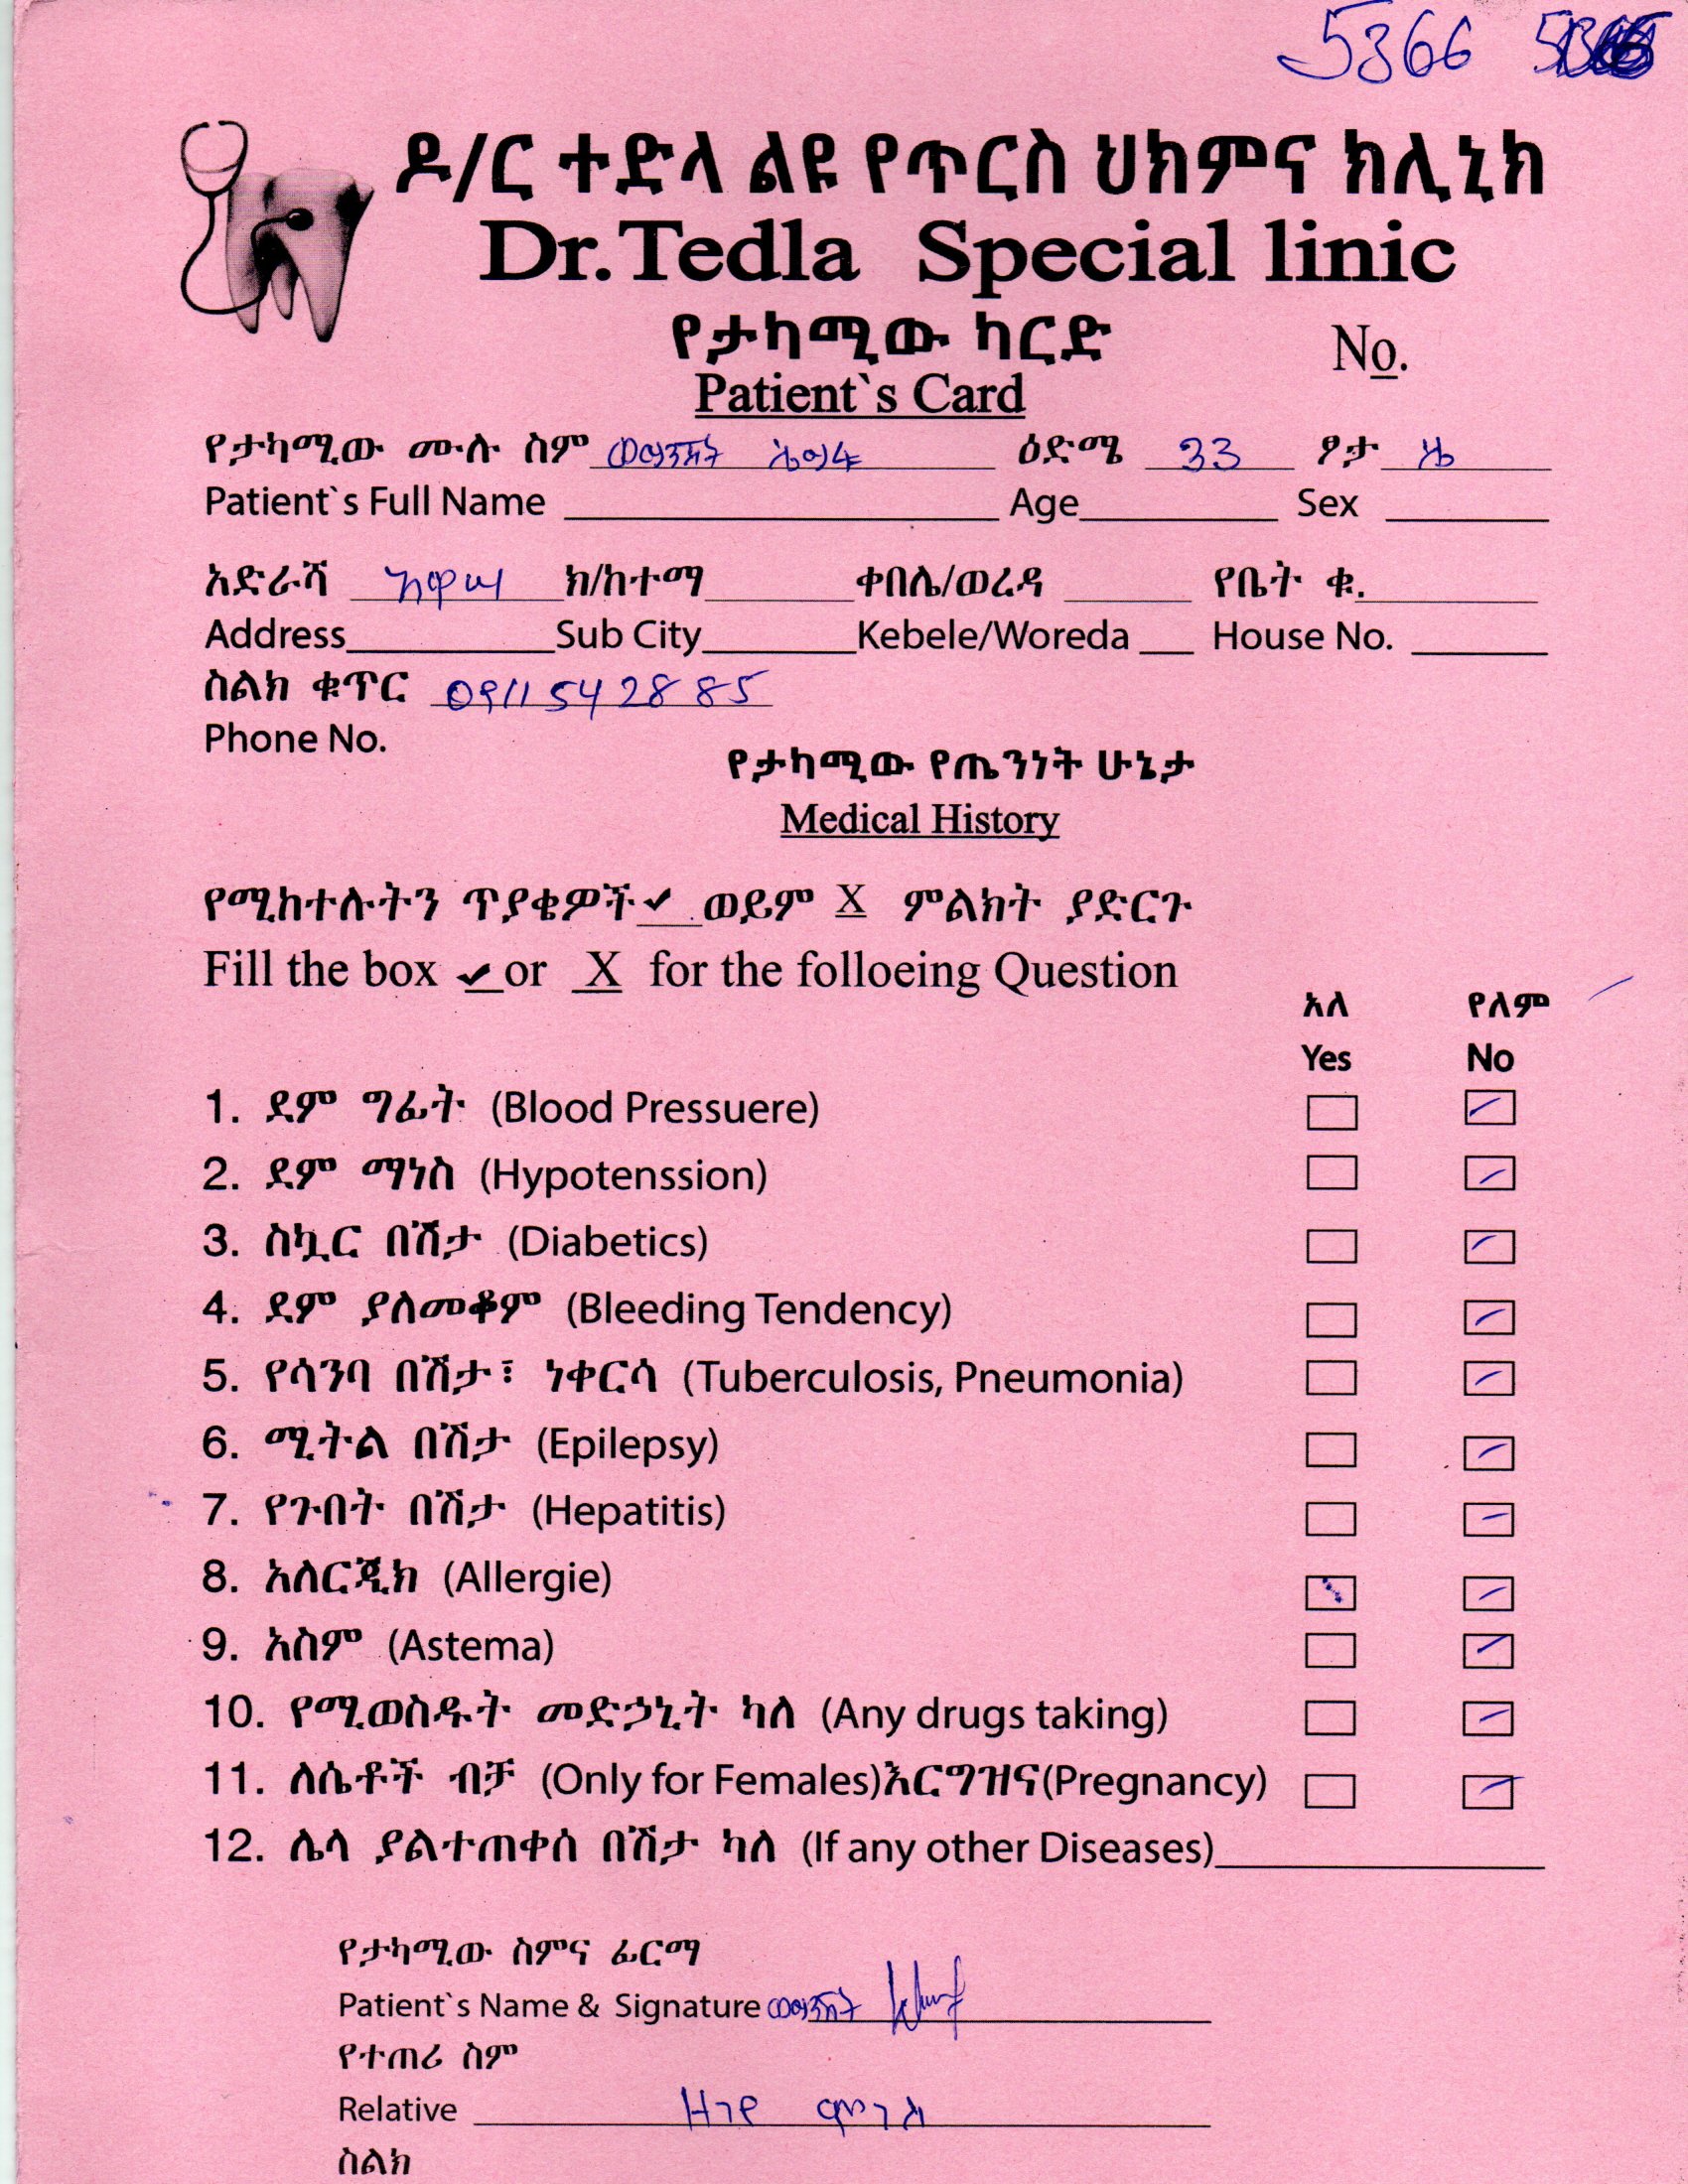 5366
ዶ/ር ተድላ ልዩ የጥርስ ህክምና ክሊኒክ
Dr.Tedla Special linic
የታካሚው ካርድ
No.
Patient`s Card
የታካሚው ሙሉ ስም ዕድሜ 33 ፆታ ሴ
Patient`s Full Name Age Sex
አድራሻ አዋሣ ክ/ከተማ ቀበሌ/ወረዳ የቤት ቁ.
Address Sub City Kebele/Woreda House No.
ስልክ ቁጥር 0911542885
Phone No.
የታካሚው የጤንነት ሁኔታ
Medical History
የሚከተሉትን ጥያቄዎች ✔ ወይም X ምልክት ያድርጉ
Fill the box ✔ or X for the folloeing Question
አለ የለም
Yes No
1. ደም ግፊት (Blood Pressuere)
2. ደም ማነስ (Hypotenssion)
3. ስኳር በሽታ (Diabetics)
4. ደም ያለመቆም (Bleeding Tendency)
5. የሳንባ በሽታ፣ ነቀርሳ (Tuberculosis, Pneumonia)
6. ሚትል በሽታ (Epilepsy)
7. የጉበት በሽታ (Hepatitis)
8. አለርጂክ (Allergie)
9. አስም (Astema)
10. የሚወስዱት መድኃኒት ካለ (Any drugs taking)
11. ለሴቶች ብቻ (Only for Females)እርግዝና(Pregnancy)
12. ሌላ ያልተጠቀሰ በሽታ ካለ (If any other Diseases)
የታካሚው ስምና ፊርማ
Patient`s Name & Signature
የተጠሪ ስም
Relative
ስልክ